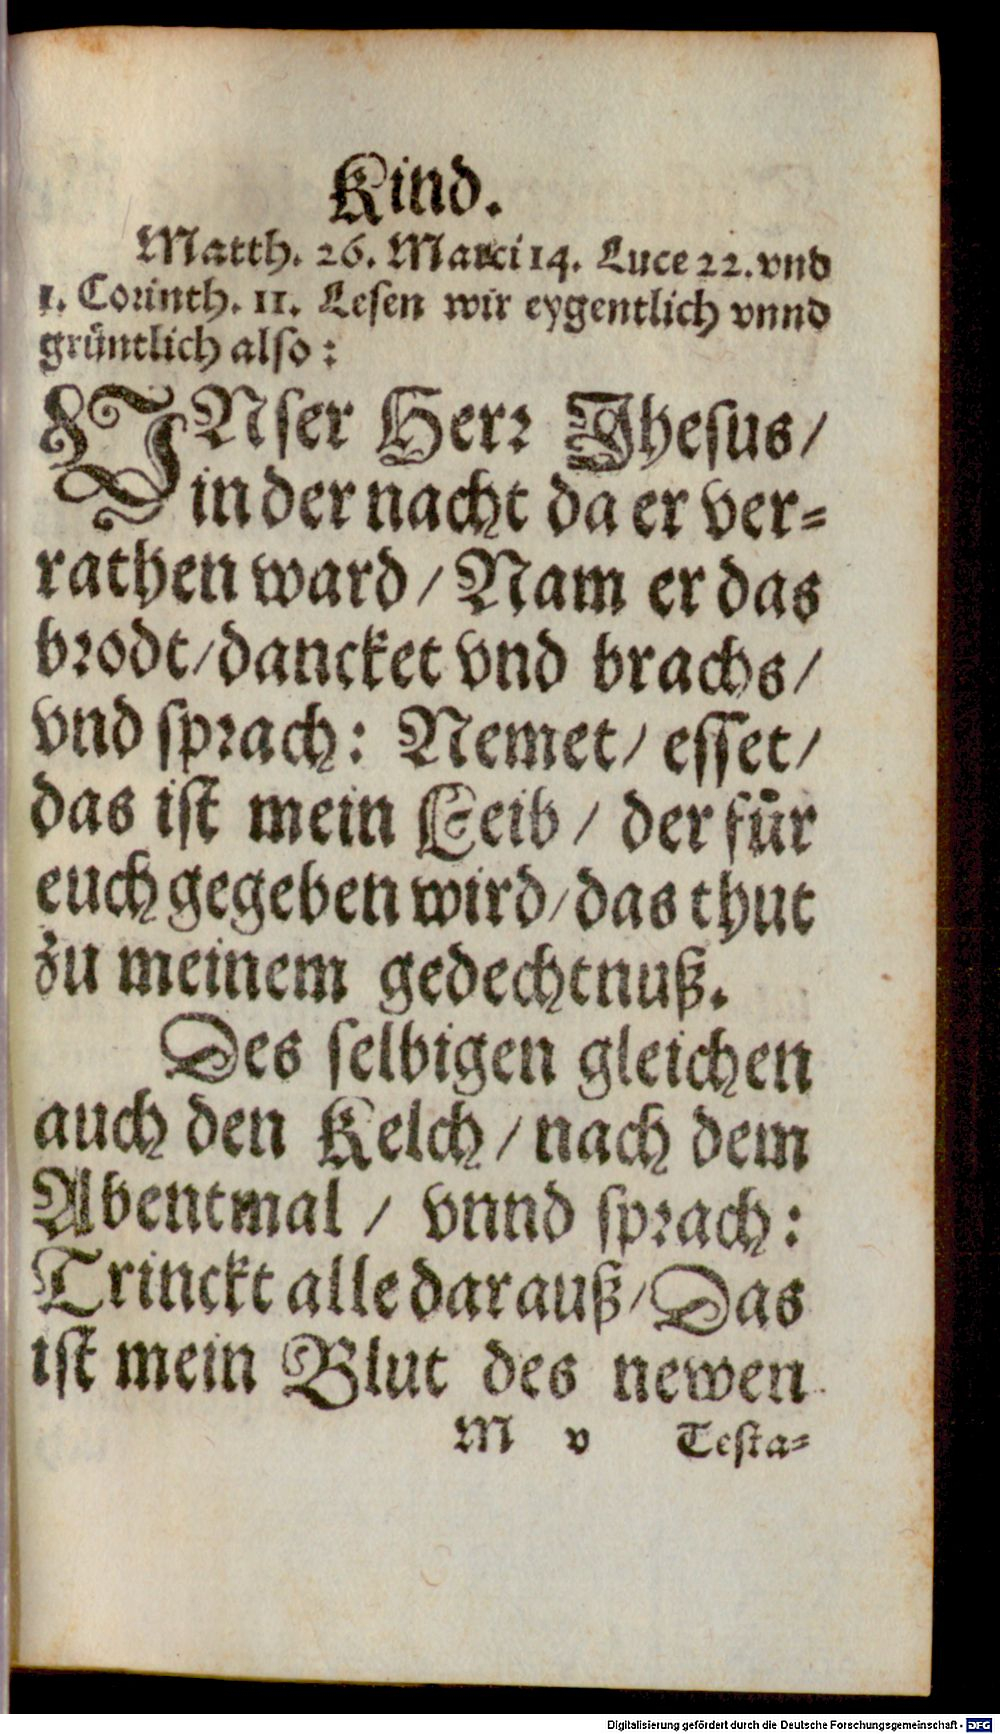 Kind.
Matth. 26. Marci 14. Luce 22. vnd
1. Corinth. 11. Lesen wir eygentlich vnnd
gruͤntlich also:
VNser Herr Jhesus/
in der nacht da er ver⸗
rathen ward/ Nam er das
brodt/ dancket vnd brachs/
vnd sprach: Nemet/ esset/
das ist mein Leib/ der fuͤr
euch gegeben wird/ das thut
zu meinem gedechtnuß.
Des selbigen gleichen
auch den Kelch/ nach dem
Abentmal/ vnnd sprach:
Trinckt alle darauß/ Das
ist mein Blut des newen
M v Testa⸗
Digitalisierung gefördert durch die Deutsche Forschungsgemeinschaft - DFG